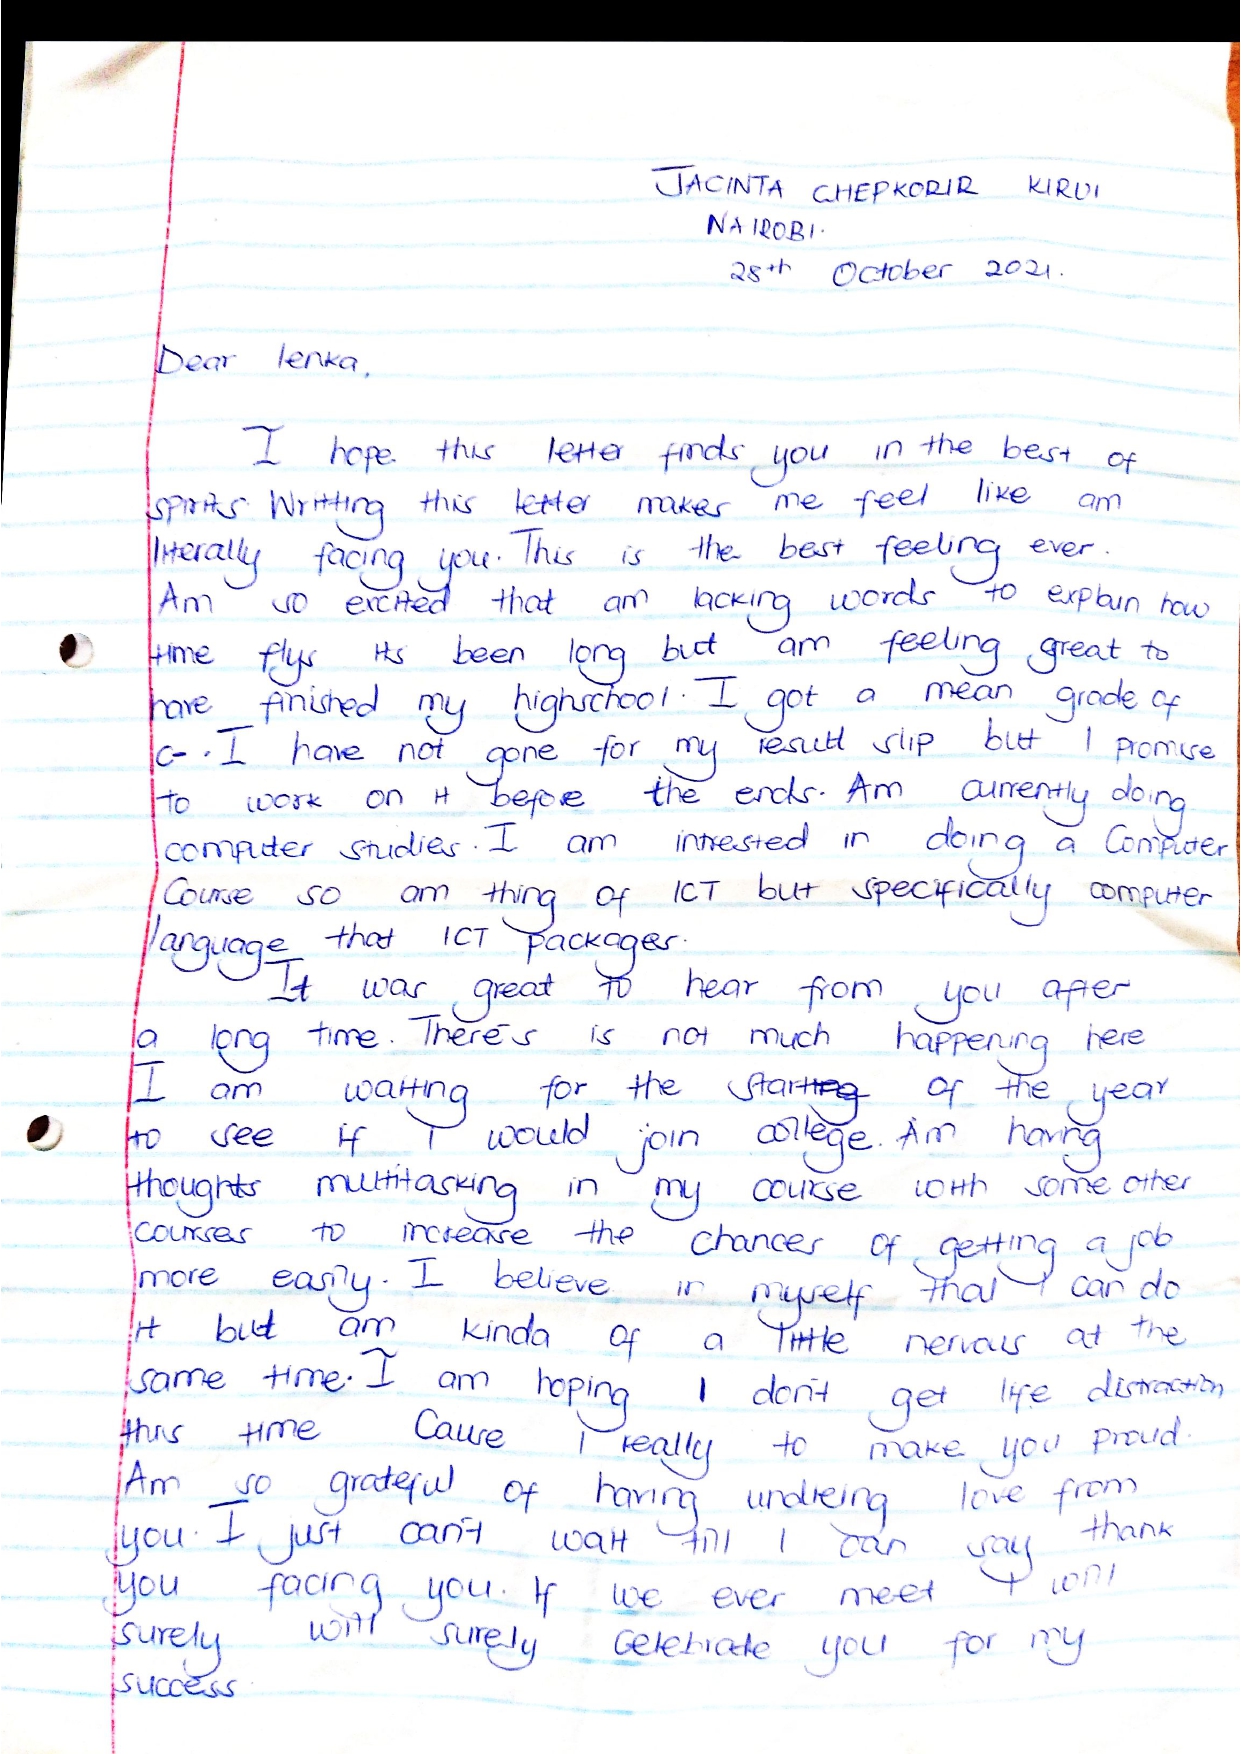 JACINTA CHEPKORIR KIRUI
NAIROBI.
28th October 2021.
Dear lenka,
I hope this letter finds you in the best of
spirits. Writting this letter makes me feel like am
literally facing you. This is the best feeling ever.
Am so excited that am lacking words to explain how
time flys its been long but am feeling great to
have finished my highschool. I got a mean grade of
C-. I have not gone for my result slip but I promise
to work on it before the ends. Am currently doing
computer studies. I am intrested in doing a Computer
Course so am thing of ICT but specifically computer
language that ICT packages.
It was great to hear from you after
a long time. There's is not much happening here
I am waiting for the start of the year
to see if I would join college. Am having
thoughts multitasking in my course with some other
courses to increase the chances of getting a job
more easily. I believe in myself that I can do
it but am kinda of a little nervous at the
same time. I am hoping I don't get life distraction
this time Cause I really to make you proud.
Am so grateful of having undieing love from
you. I just can't wait till I can say thank
you facing you. If we ever meet I will
surely will surely celebrate you for my
success